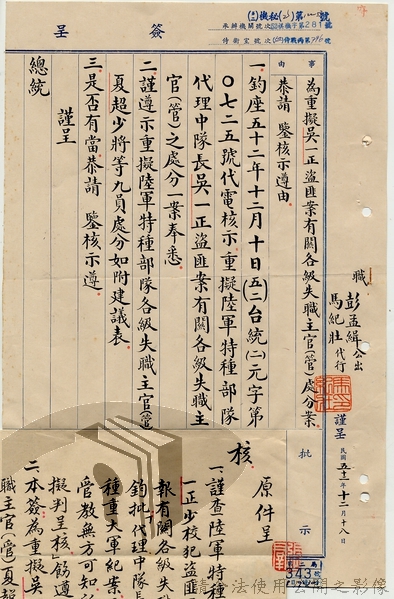 簽呈
機秘(乙)第 號
承辦機關號次
侍衛室號次
事由
為重擬吳一正盜匪案有關各級失職主官(管)處分案
恭請 鑒核示遵由
職 彭孟緝 公出
馬紀壯 代行
謹呈
民國五十二年十二月十八日
批示
一、鈞座五十二年十二月十日(五二)台統(二)元字第
〇七二五號代電核示:重擬陸軍特種部隊
代理中隊長吳一正盜匪案有關各級失職主
官(管)之處分一案奉悉。
二、謹遵示重擬陸軍特種部隊各級失職主官(管)
夏超少將等九員處分如附建議表。
三、是否有當恭請 鑒核示遵
謹呈
總統
原件呈
核
一、謹查陸軍特種
一正少校犯盜匪
報有關各級失
鈞批「代理中隊長
種重大軍紀案
管數無方可知
擬判呈核」飭遵
二、本簽為重擬吳
職主官(管)夏超
343
請合法使用公開之影像